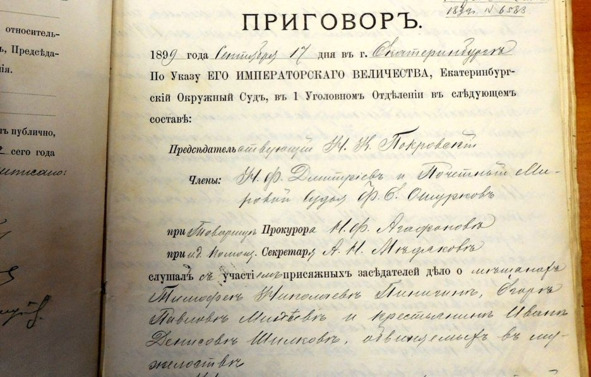 относитель-
ъ, Предсѣда-
нія.
тъ публично,
сего года
писано:
№ 6583
ПРИГОВОРЪ.
1899 года Сентября 17 дня въ г. Екатеринбургѣ
По Указу ЕГО ИМПЕРАТОРСКАГО ВЕЛИЧЕСТВА, Екатеринбург-
скій Окружный Судъ, въ 1 Уголовномъ Отдѣленіи въ слѣдующемъ
составѣ:
Предсѣдательствующій Н. К. Покровскій
Члены: Н. Ф. Дмитріевъ и Почетный Ми-
ровой Судья Ф. С. Ошурковъ
при Товарищѣ Прокурора Н. Ф. Агафоновѣ
при Помощ. Секретаря А. Н.
слушалъ съ участіемъ присяжныхъ засѣдателей дѣло о мѣщанахъ
Тимофеѣ Николаевѣ
Павловѣ и крестьянинѣ Иванѣ
Денисовѣ Шилковѣ, обвиняемыхъ въ му-
желоствѣ